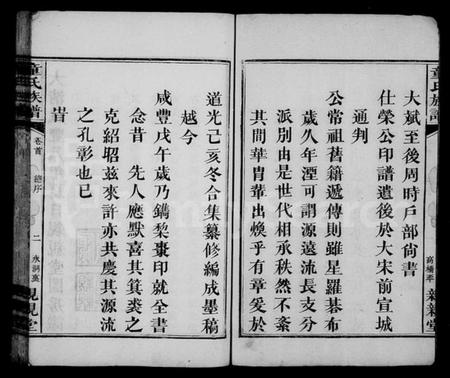 童氏族譜
高橋牽
親親堂
大斌至後周時戶部尙書
仕榮公印譜遺後於大宋前宣城
通判
公常祖舊籍遞傳則雖星羅碁布
歲久年湮可謂源遠流長支分
派別由是世代相承秩然不紊
其間華胄華出煥乎有章爰於
道光己亥冬合集纂修編成墨稿
越今
咸豐戊午歲乃鐫棃棗印就全書
念昔 先人應默喜其箕裘之
克紹昭茲來許亦共慶其源流
之孔彰也已
旹
童氏族譜
卷首
總序
二
永洞衷
親親堂